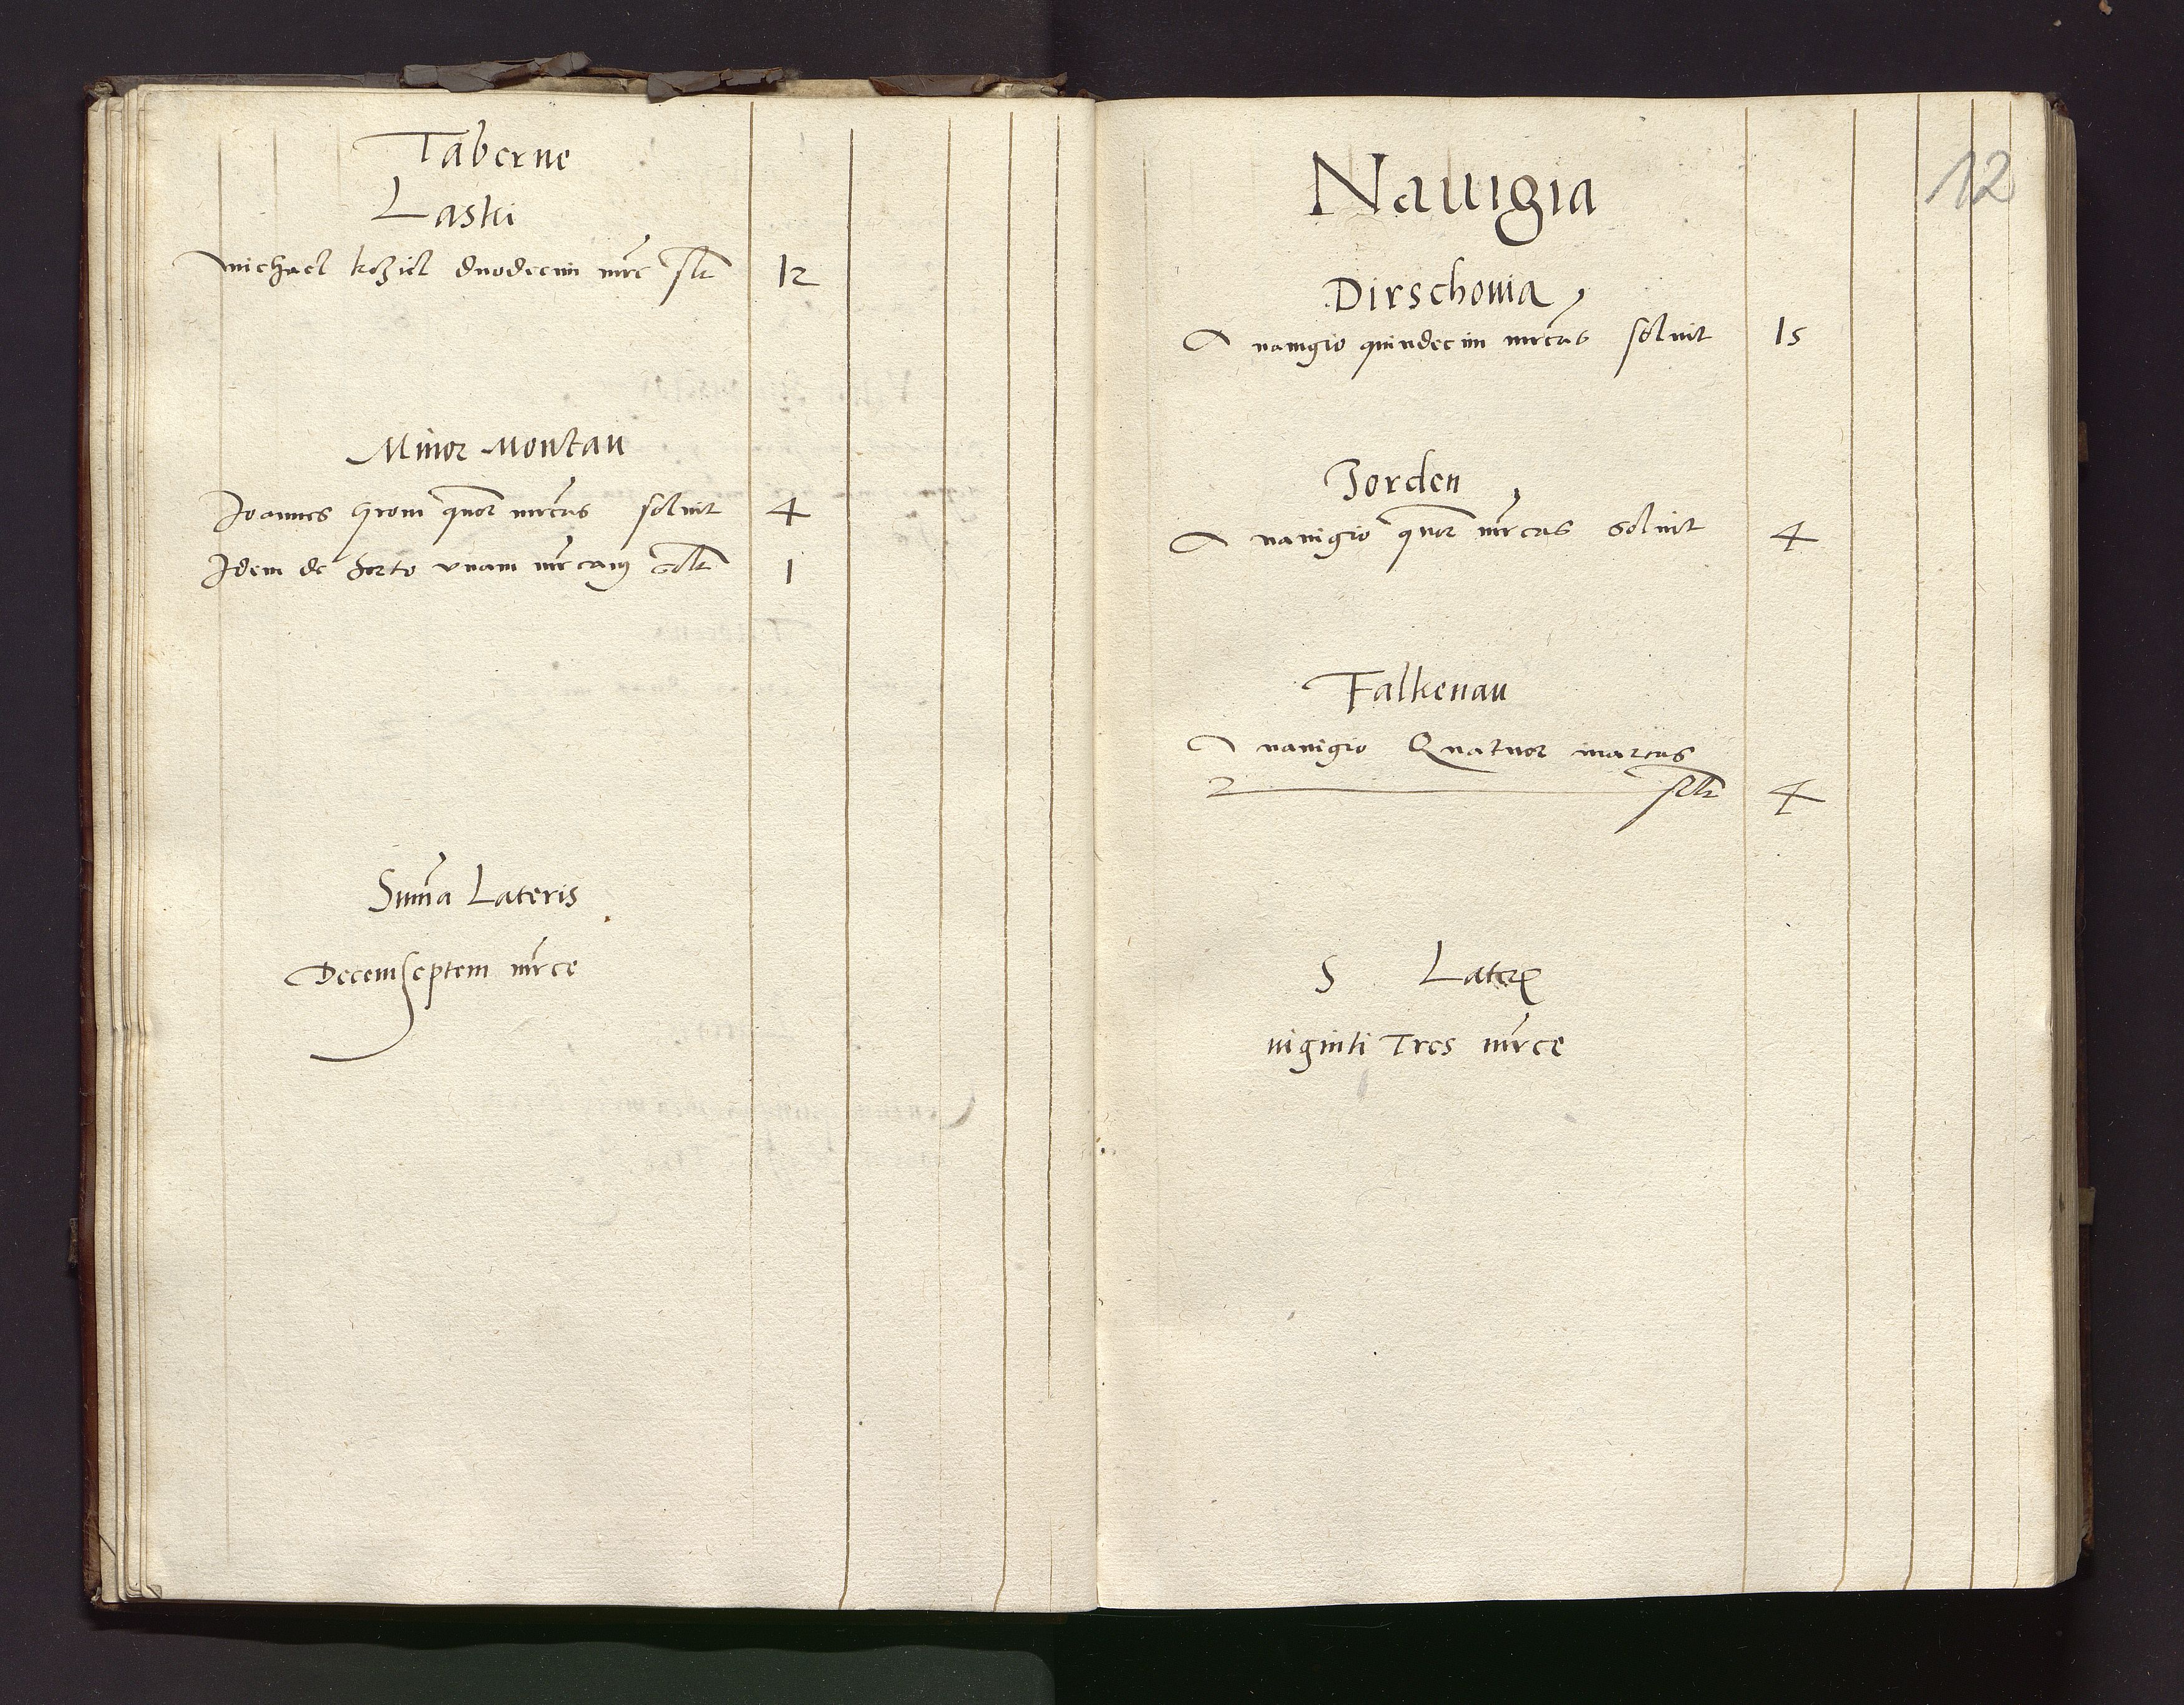 Taberne
Laski
michael koziel duodecim mrc slt 12
Minor Montau
Joannes Grom quor mrcas soluit 4
Idem de horto vnam mrcam solt 1
Summa Lateris
Decemseptem mrce
12
Nauigia
Dirschouia
A nauigio quindecim mrcas soluit 15
Jorden
A nauigio quor mrcas soluit 4
Falkenau
A nauigio Quatuor marcas
solt 4
S Lateris
uiginti Tres mrce